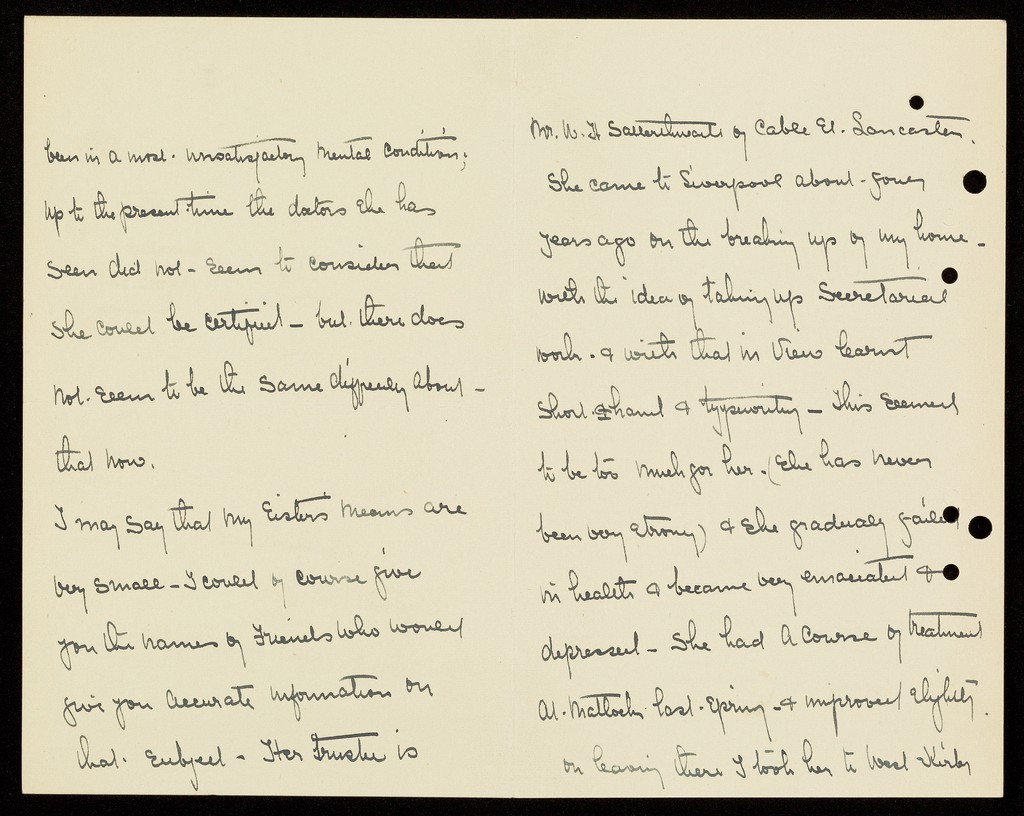 been in a most unsatisfactory mental condition;
up to the present time the doctors she has
seen did not - seem to consider that
she could be certified - but there does
not seem to be the same difficulty about -
that now.
I may say that my sister's means are
very small - I could of course give
you the names of Friends who would
give you accurate information on
that subject - Her Trustee is
Mr. W. H Satterthwaite of Cable St. Lancaster.
She came to Liverpool about four
years ago on the breaking up of my home -
with the idea of taking up Secretarial
work - & with that in view learnt
short hand & typewriting - This seemed
to be too much for her. (She has never
been very strong) & she gradually failed
in health & became very emaciated &
depressed - She had a course of treatment
at Matlock last Spring - & improved slightly.
on leaving there I took her to West Kirby